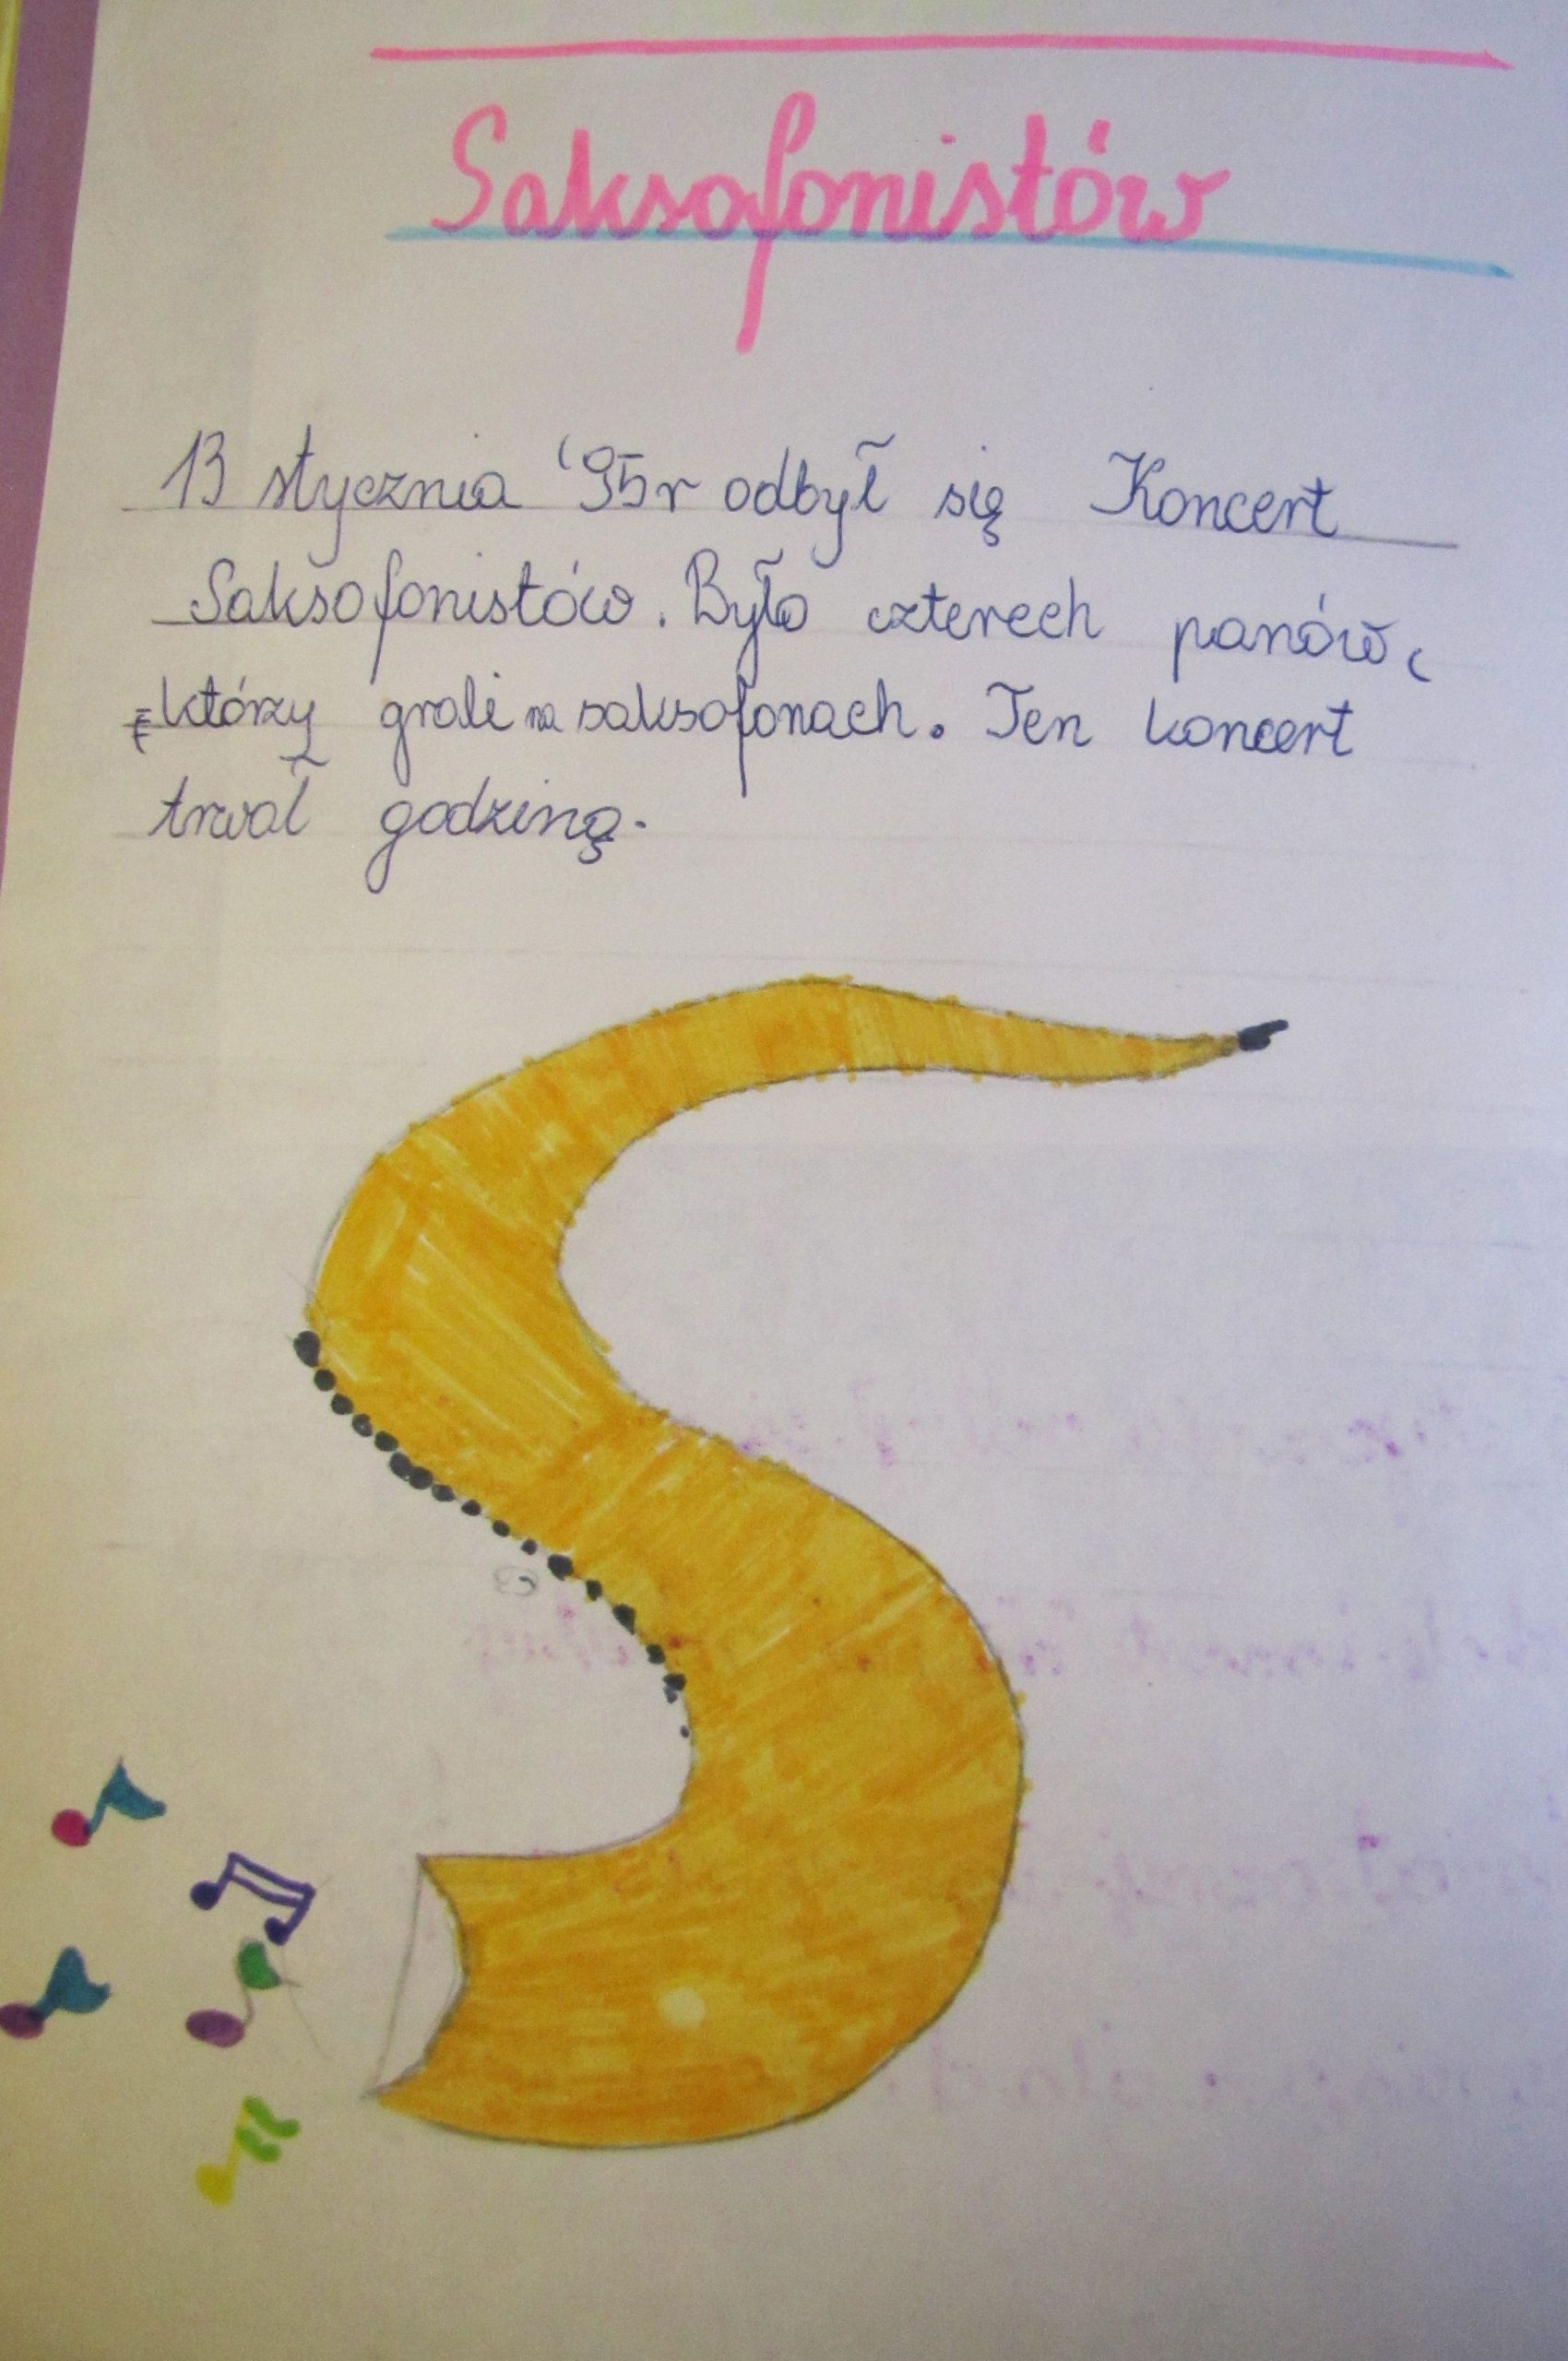 Saksofonistów
13 stycznia '95r odbył się Koncert
Saksofonistów. Było czterech panów,
którzy grali na saksofonach. Ten koncert
trwał godzinę.